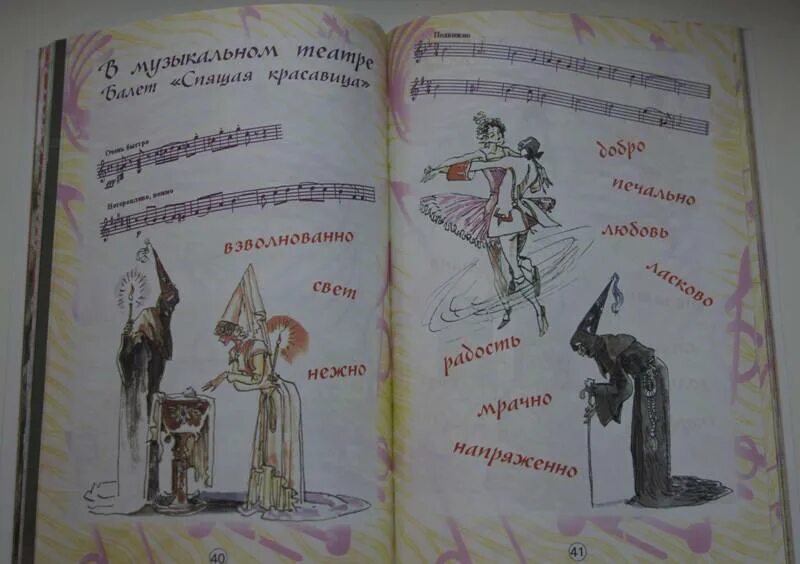 В музыкальном театре
Балет «Спящая красавица»
Очень быстро
ff
Неторопливо, певно
p
взволнованно
свет
нежно
40
Подвижно
добро
печально
любовь
ласково
радость
мрачно
напряженно
41